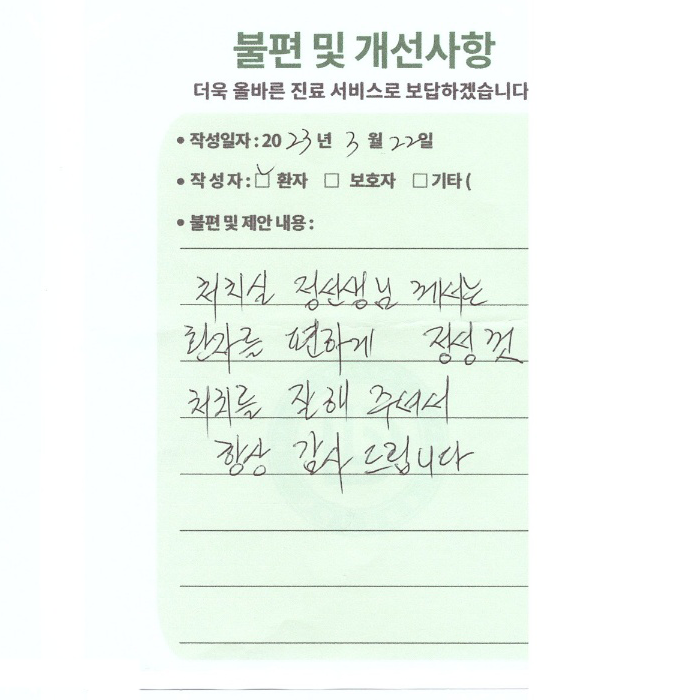 불편 및 개선사항
더욱 올바른 진료 서비스로 보답하겠습니다
• 작성일자 : 2023년 3월 22일
• 작 성 자 : ☑ 환자 □ 보호자 □ 기타 (
• 불편 및 제안 내용 :
처치실 정선생님 께서는
환자를 편하게 정성껏
처치를 잘 해 주셔서
항상 감사 드립니다